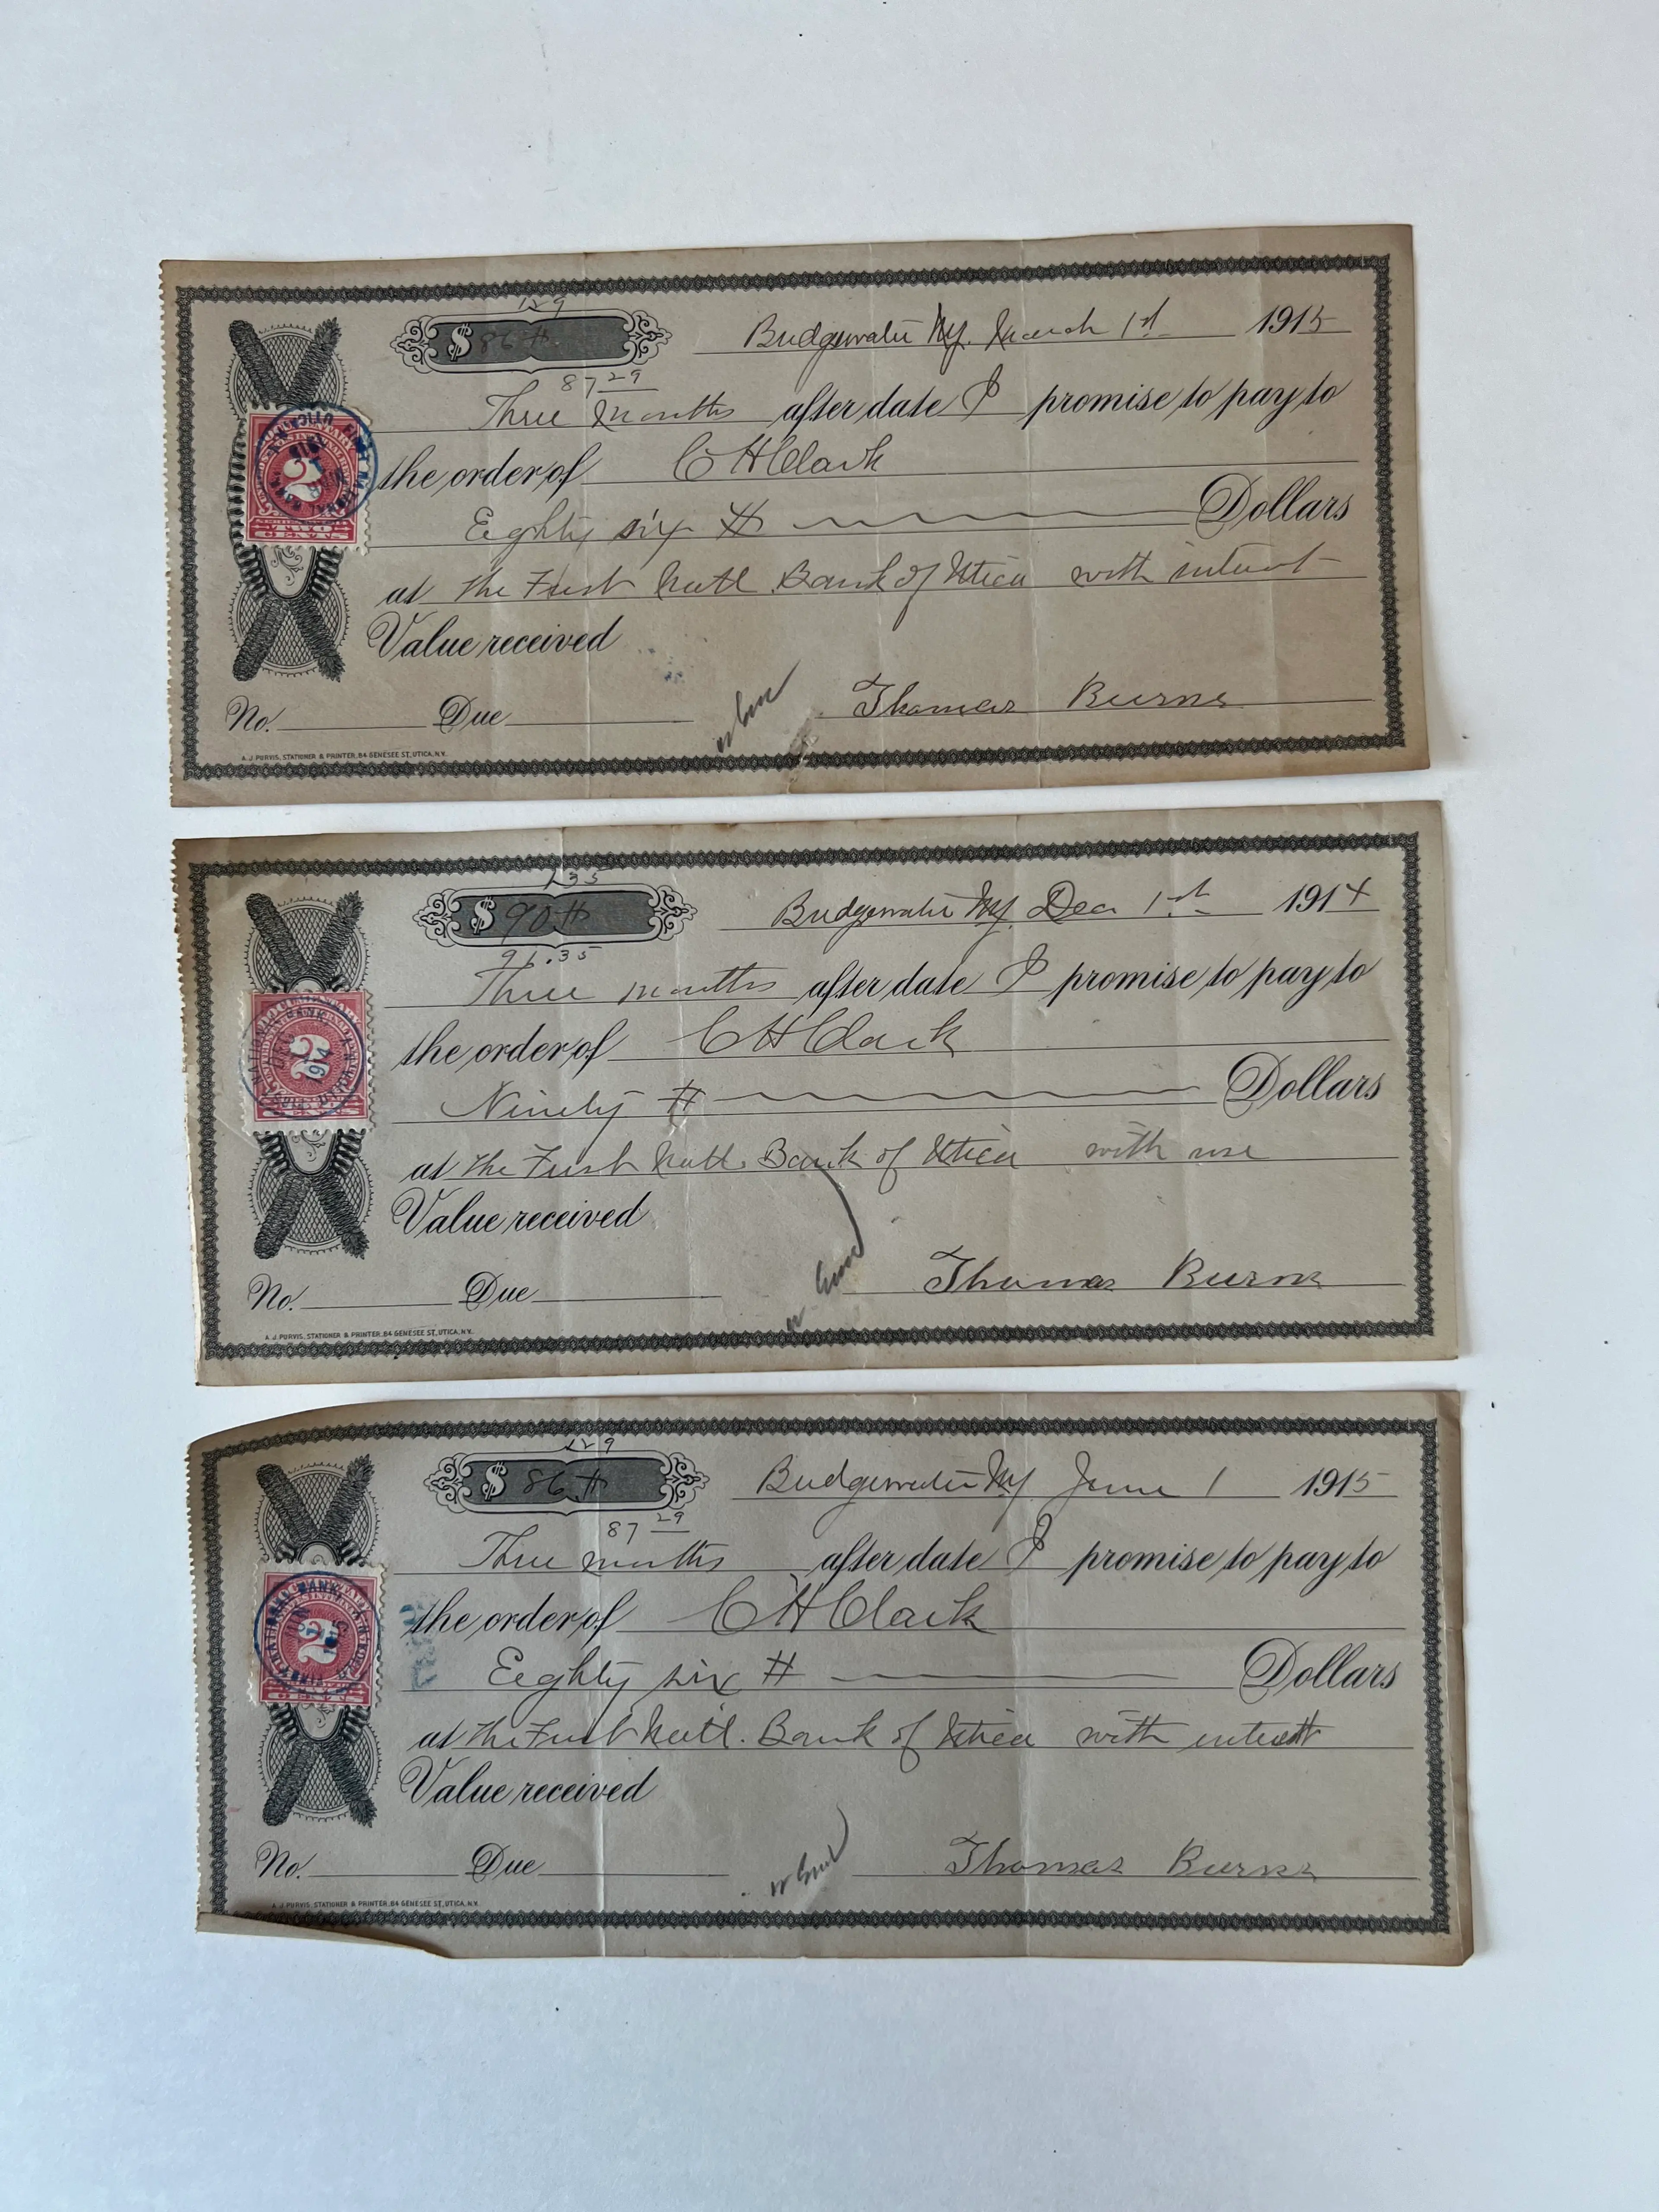 1 29
$ 86 #
Bridgewater NY. March 1st 1915
87 29
Three Months after date I promise to pay to
the order of C H Clark
Eighty six # Dollars
at the First Natl. Bank of Utica with interest
Value received
No. Due Thomas Burns
A. J. PURVIS, STATIONER & PRINTER, 84 GENESEE ST, UTICA, N.Y.
2
CENTS
1 35
$ 90 #
Bridgewater NY. Dec 1st 1914
91.35
Three months after date I promise to pay to
the order of C H Clark
Ninety # Dollars
at the First Natl. Bank of Utica with use
Value received
No. Due Thomas Burns
A. J. PURVIS, STATIONER & PRINTER, 84 GENESEE ST, UTICA, N.Y.
2
1914
1 29
$ 86 #
Bridgewater NY June 1 1915
87 29
Three months after date I promise to pay to
the order of C H Clark
Eighty six # Dollars
at the First Natl. Bank of Utica with interest
Value received
No. Due Thomas Burns
A. J. PURVIS, STATIONER & PRINTER, 84 GENESEE ST, UTICA, N.Y.
2
1915